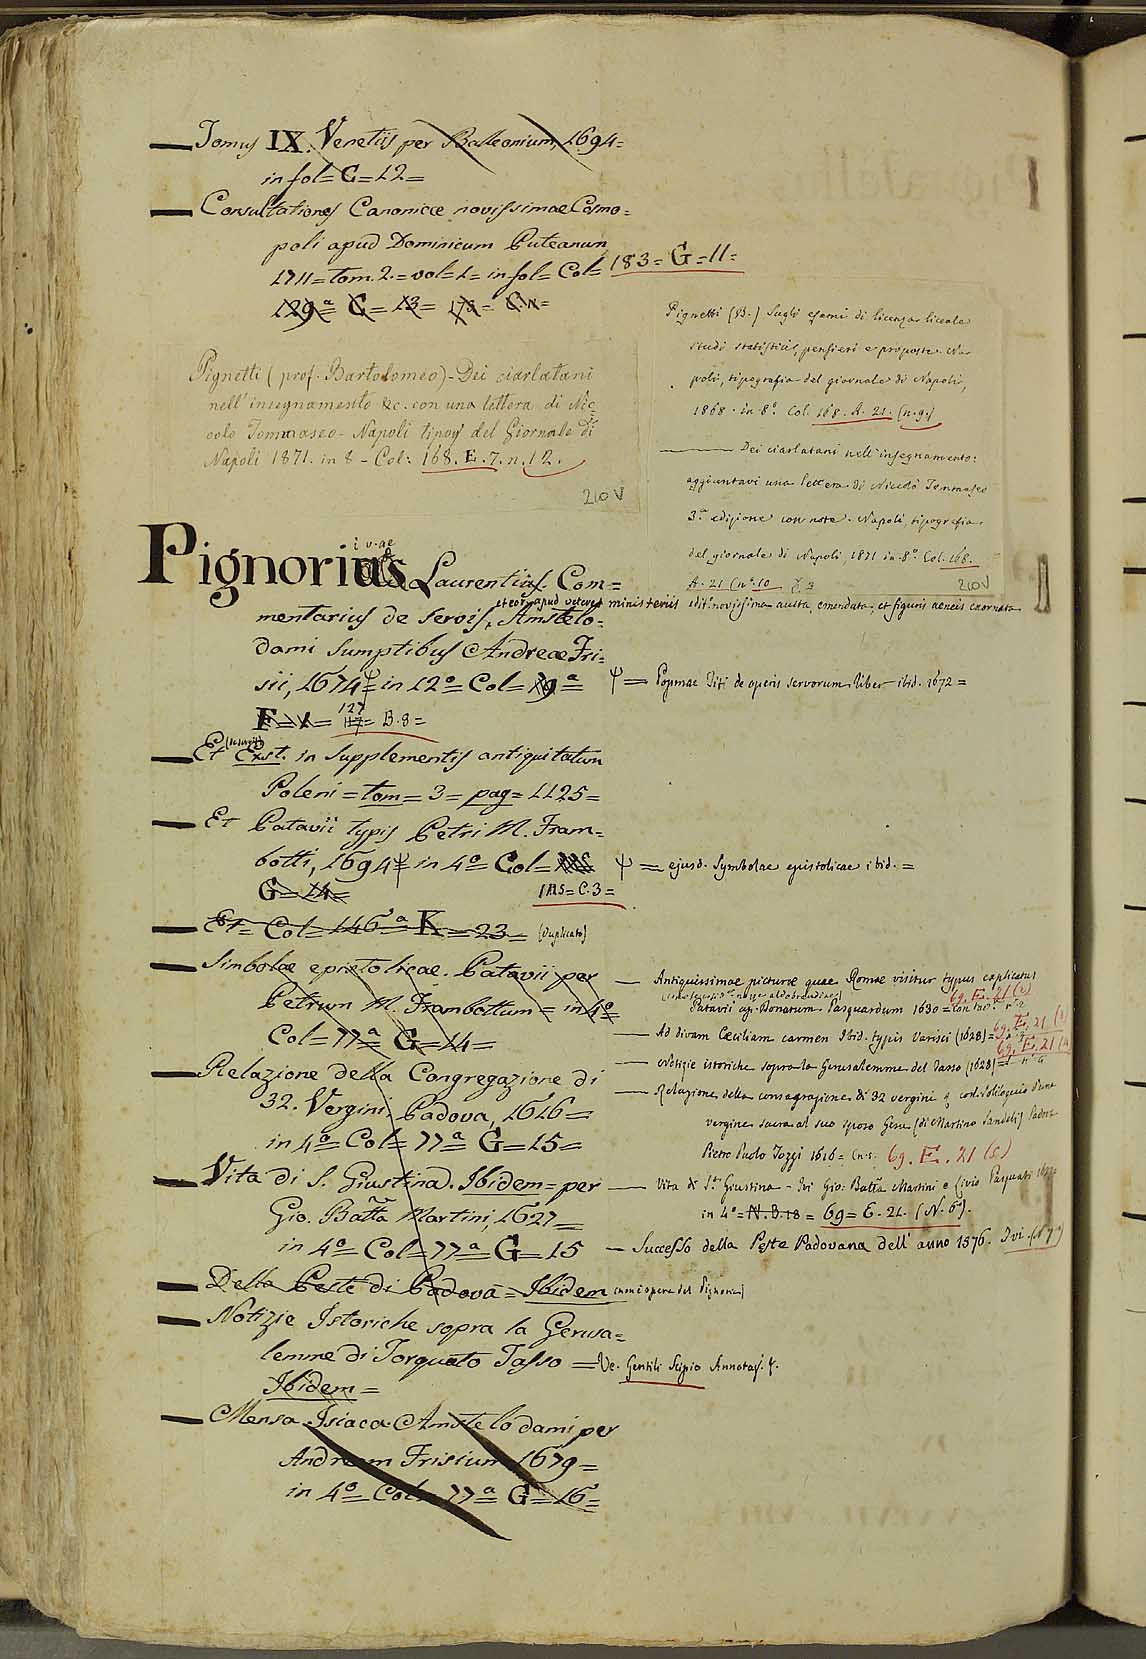 Tomus IX. Venetiis per Balleonium, 1694=
in fol= G=12=
Consultationes Canonicæ novissimae Cosmo=
poli apud Dominicum Puteanum
1711= tom. 2.= vol=1= in fol= Col= 183= G=11=
129ª G=13= 173= G.11=
Pignetti (prof. Bartolomeo) - Dei ciarlatani
nell'insegnamento &c. con una lettera di Nic=
colo Tommaseo - Napoli tipog del Giornale di
Napoli 1871. in 8 - Col: 168. E. 7. n. 12.
210 V
Pignetti (B.) Sugli esami di licenza liceale
studi statistici, pensieri e proposte. Na=
poli, tipografia del giornale di Napoli,
1868. in 8º. Col. 168. A. 21. (n. 9.)
Dei ciarlatani nell'insegnamento:
aggiuntavi una lettera di Niccolò Tommaseo
3ª edizione con note. Napoli, tipografia
del giornale di Napoli, 1871 in 8º. Col. 168.
A. 21 (nº. 10
210 V
Pignorius Laurentius. Com=
mentarius de servis, et eor. apud veteres ministeriis edit. novissima aucta, emendata, et figuris aeneis exornata
Amstelo=
dami sumptibus Andreæ Fri=
sii, 1674 Ψ= in 12º= Col= 19ª= Ψ= Popmae Titi de operis servorum liber ibid. 1672=
F=1= 127= B. 8=
Et Exst. in Supplementis antiquitatum
Poleni= tom= 3= pag= 1125=
Et Patavii typis Petri M. Fram=
botti, 1694 Ψ in 4º= Col= Ψ= ejusd. Symbolae epistolicae ibid.=
G=14= 115= C. 3=
Et= Col= 146ª= K=23= (duplicato)
Simbolæ epistolicae. Patavii per
Petrum M. Frambottum= in 4º=
Col=77ª= G=14=
Relazione della Congregazione di
32. Vergini, Padova, 1616=
in 4º= Col=77ª G=15=
Vita di S. Giustina. Ibidem= per
Gio. Batta Martini, 1627=
in 4º= Col=77ª= G=15
Della Peste di Padova= Ibidem (non è opera del Pignorio)
Notizie Istoriche sopra la Gerusa=
lemme di Torquato Tasso= Ve. Gentili Scipio Annotaz. &.
Ibidem=
Mensa Isiaca Amstelodami per
Andream Frisium 1679=
in 4º= Col= 77ª= G=16=
Antiquissimae picturæ quae Romæ visitur typus explicatus
Patavii ap. Donatum Pasquardum 1630= 69. E. 21 (1)
Ad divam Cæciliam carmen Ibid. typis Varisci (1628)= 69. E. 21
Notizie istoriche sopra la Gerusalemme del Tasso (1628)= 69. E. 21
Relazione della consagrazione di 32 vergini &
vergine sacra al suo sposo Gesu (di Martino Sandeli) Padova
Pietro Paolo Tozzi 1616= (n. 5. 69. E. 21 (5)
Vita di Sta. Giustina - Ivi Gio: Batta Martini e Livio Pasquati
in 4º= N. B. 18= 69= E. 21. (N. 6º).
Successo della Peste Padovana dell'anno 1576. Ivi. (N 7º)